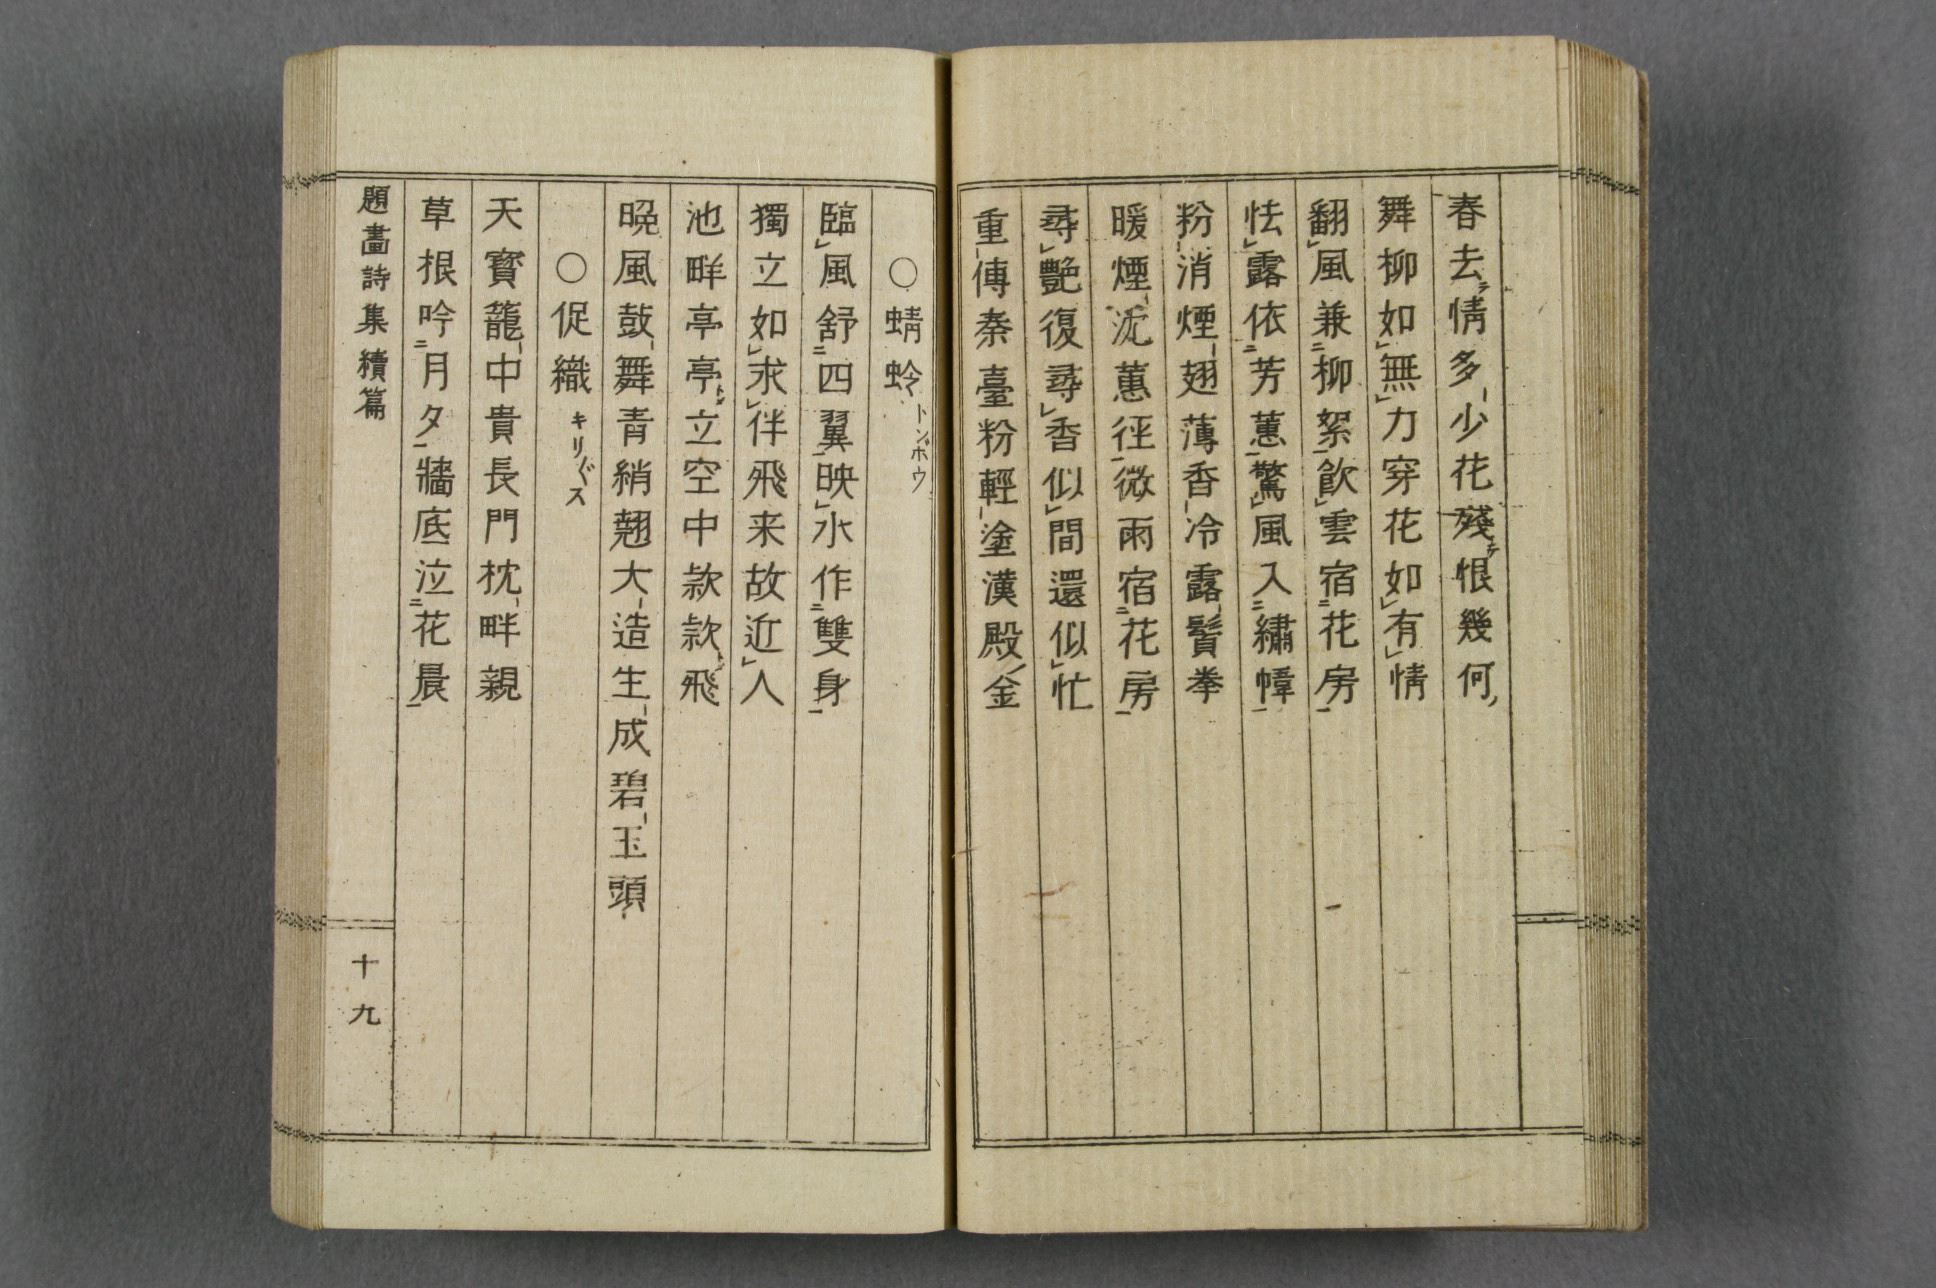 春去情多少花殘恨幾何
舞柳如無力穿花如有情
翻風兼柳絮飲雲宿花房
怯露依芳蕙驚風入繡幛
粉消煙翅薄香冷露鬢拳
暖煙沈蕙徑微雨宿花房
尋艶復尋香似間還似忙
重傳秦臺粉輕塗漢殿金
〇蜻蛉トンボウ
臨風舒四翼映水作雙身
獨立如求伴飛来故近人
池畔亭亭立空中款款飛
晩風鼓舞青綃翅大造生成碧玉頭
〇促織キリ〴〵ス
天寳籠中貴長門枕畔親
草根吟月夕牆底泣花晨
題畵詩集續篇
十九